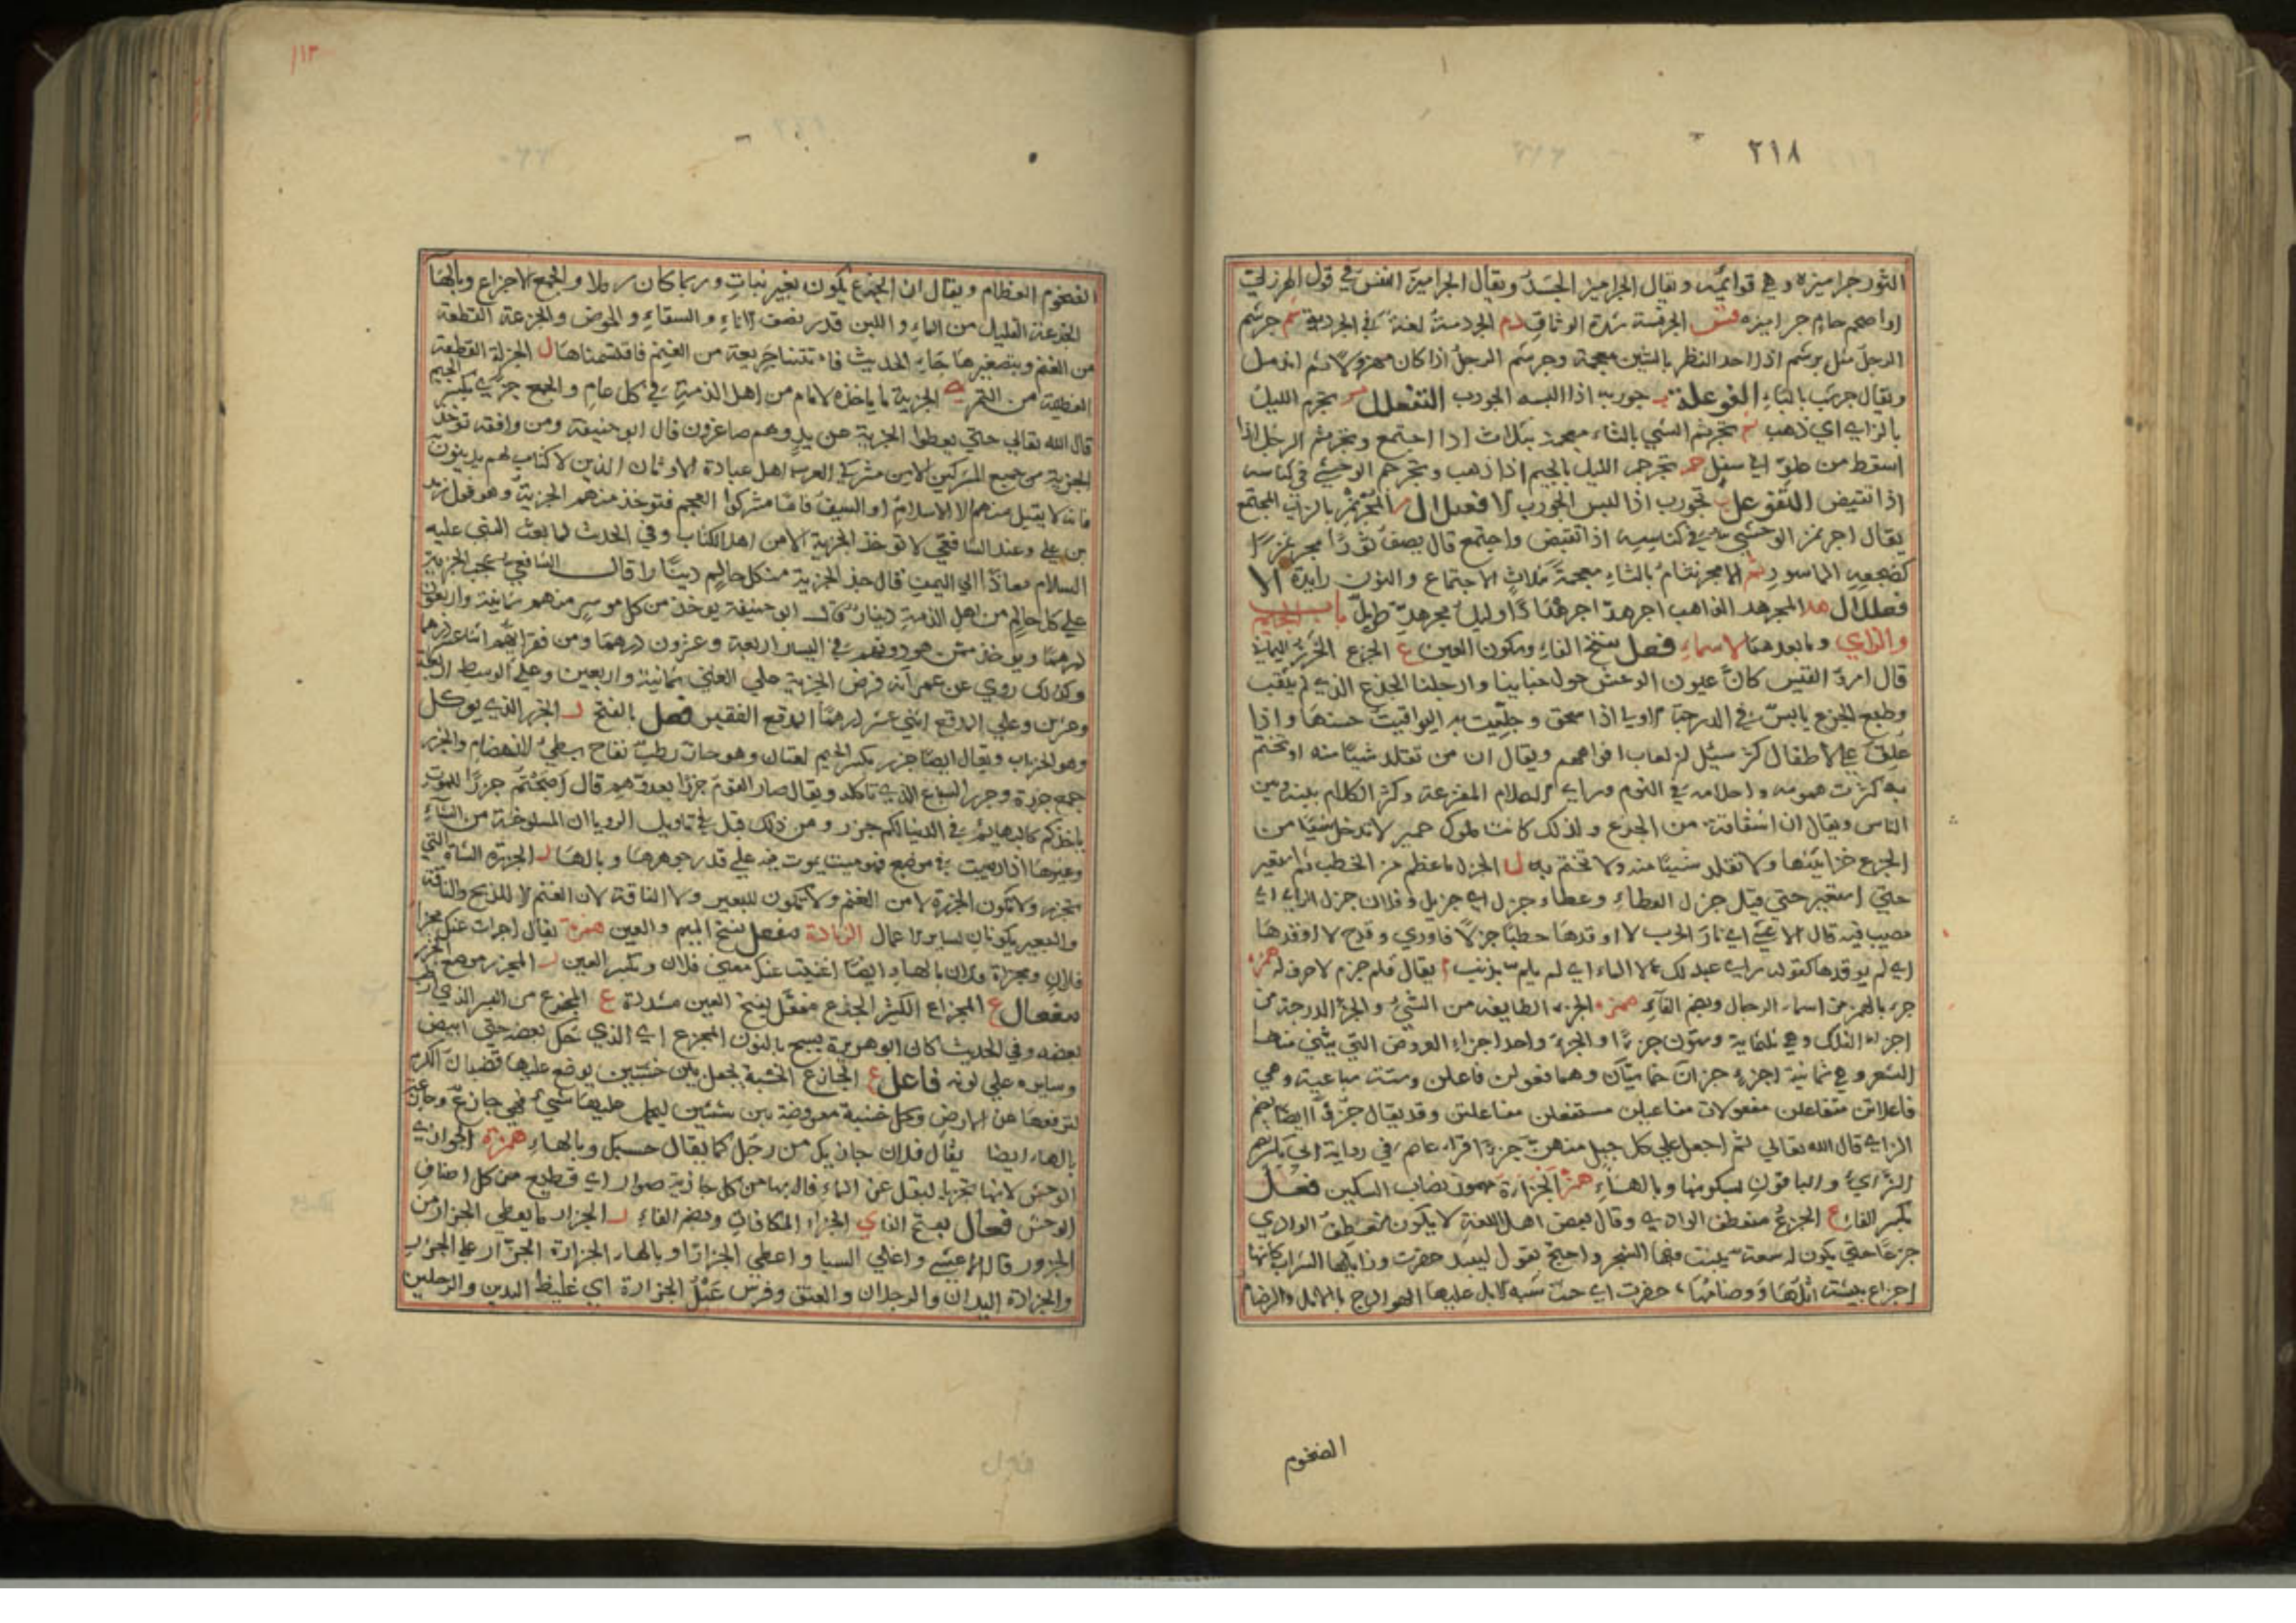 ٢١٨
الثور جراميزه وهي قوائمه ويقال الجراميز الجسد ويقال الجراميز النفس في قول الهزلي
او اصحم حام جراميزه الجرفسة شدة الوثاق دم الجردمة لغة في الجردبة سم جرسم
الرجل مثل برشم اذا احد النظر بالشين معجمة وجرشم الرجل اذا كان مهزولا ثم اندمل
ويقال جرشب بالباء الفوعلة ب جوربه اذا البسه الجورب التفعلل تجرم الليل
بالزاي اي ذهب تجرثم الشي بالثاء معجمة بثلاث اذا اجتمع وتجرثم الرجل اذا
اسقط من علو الى سفل تجرجم الليل بالجيم اذا ذهب وتجرجم الوحشي في كناسه
اذا تقبض التفوعل ب تجورب اذا لبس الجورب الافعلال المجرمز بالزاي المجتمع
يقال اجرمز الوحشي في كناسه اذا تقبض واجتمع قال يصف ثورا مجرمزا
كضجعة الماسور الاجرنثام بالثاء معجمة بثلاث الاجتماع والنون زايدة الا
فعلال هد المجرهد الذاهب اجرهد اجرهدادا وليل مجرهد طويل باب الجيم
والزاي وما بعدهما الاسماء فعل بفتح الفاء وسكون العين ع الجزع الخرز اليماني
قال امرؤ القيس كان عيون الوحش حول خبائنا وارحلنا الجزع الذي لم يثقب
وطبع الجزع يابس في الدرجة الاولى اذا سحق وجليت به اليواقيت حسنها واذا
علق على الاطفال كثر سيل لعاب افواههم ويقال ان من تقلد شيئا منه او تختم
به كثرت همومه واحلامه في النوم وراى الاحلام المفزعة وكثر الكلام بينه وبين
الناس ويقال ان اشتقاقه من الجزع ولذلك كانت ملوك حمير لا تدخل شيئا من
الجزع خزائنها ولا تقلد شيئا منه ولا تختم به ل الجزل ما عظم من الحطب ثم استعير
حتى استعير حتى قيل جزل العطاء وعطاء جزل اي جزيل وفلان جزل الراي اي
مصيب فيه قال الاعشى اي نار الحرب لا اوقدها حطبا جزلا فاوري وقدح لا اوقدها
اي لم يوقدها كقوله راي عبد لك لا الماء اي لم يلم بذنب م يقال قلم جزم لا حرف له همزه
جزء بالهمز من اسماء الرجال وبضم الفاء همزه الجزء الطايفة من الشيء والجزء الدرجة من
اجزاء الفلك وهي ثلثماية وستون جزءا والجزء واحد اجزاء العروض التي يبنى منها
الشعر وهي ثمانية اجزاء جزآن خماسيان وهما فعولن فاعلن وستة سباعية وهي
فاعلاتن متفاعلن مفعولات مفاعيلن مستفعلن مفاعلتن وقد يقال جزء ايضا بضم
الزاي قال الله تعالى ثم اجعل على كل جبل منهن جزءا قراءة عاصم في رواية ابي بكر بضم
الزاي والباقون بسكونها وبالهاء همزه الجزاة مهموز نصاب السكين فعل
بكسر الفاء ع الجزع منعطف الوادي وقال بعض اهل اللغة لا يكون منعطف الوادي
جزعا حتى يكون له سعة ينبت فيها الشجر واحتج بقول لبيد حفزت وزايلها السراب كانها
اجزاع بيشة اثلها ورضامها حفزت اي حثت شبه الابل عليها الهوادج بالاثل والرضام
الضخوم
١١٣
الضخوم العظام ويقال ان الجزع يكون بغير نبات وربما كان رملا والجمع الاجزاع وبالهاء
الجزعة القليل من الماء واللبن قدر نصف الاناء والسقاء والحوض والجزعة القطعة
من الغنم وبتصغيرها جاء الحديث فاتتنا جزيعة من الغنم فاقتسمناها ل الجزلة القطعة
العظيمة من التمر ي الجزية ما ياخذه الامام من اهل الذمة في كل عام والجمع جزي بكسر الجيم
قال الله تعالى حتى يعطوا الجزية عن يد وهم صاغرون قال ابو حنيفة ومن وافقه توخذ
الجزية من جميع المشركين الا من مشركي العرب اهل عبادة الاوثان الذين لا كتاب لهم يدينون
فانه لا يقبل منهم الا الاسلام او السيف فاما مشركوا العجم فتوخذ منهم الجزية وهو قول زيد
بن علي وعند الشافعي لا توخذ الجزية الا من اهل الكتاب وفي الحديث لما بعث النبي عليه
السلام معاذا الى اليمن قال خذ الجزية من كل حالم دينارا قال الشافعي تجب الجزية
على كل حالم من اهل الذمة دينار قال ابو حنيفة يوخذ من كل موسر منهم ثمانية واربعون
درهما ويوخذ ممن هو دونه في اليسار اربعة وعشرون درهما ومن فقرائهم اثنا عشر درهما
وكذلك روي عن عمر انه فرض الجزية على الغني ثمانية واربعين وعلى الوسط اربعة
وعشرين وعلى المدقع اثني عشر درهما المدقع الفقير فعل بالفتح ر الجزر الذي يوكل
وهو الحراب ويقال ايضا جزر بكسر الجيم لغتان وهو حار رطب نفاخ بطيء الانهضام والجزر
جمع جزرة وجزر السباع الذي تاكله ويقال صار القوم جزرا لعدوهم قال اصبحتم جزرا للموت
ياخذكم كالبهائم في الدنيا لكم جزر ومن ذلك قيل في تاويل الرويا ان المسلوخة من الشاء
وغيرها اذا رميت في موضع فهو ميت يموت فيه على قدر جوهرها وبالهاء ر الجزرة الشاة التي
تجزر ولا تكون الجزرة الا من الغنم ولا تكون للبعير ولا الناقة لان الغنم الا للذبح والناقة
والبعير يكونان لساير الاعمال الزيادة مفعل بفتح الميم والعين همزة يقال اجزات عنك مجزا
فلان ومجزاة فلان بالهاء ايضا اغنيت عنك مغنى فلان وبكسر العين ر المجزر موضع الجزر
مفعال ع المجزاع الكثير الجزع مفعل بفتح العين مشددة ع المجزع من البسر الذي ارطب
بعضه وفي الحديث كان ابو هريرة يسبح بالنوى المجزع اي الذي حك بعضه حتى ابيض
وسايره على لونه فاعل ع الجازع الخشبة تجعل بين خشبتين يوضع عليها قضبان الكرم
لترفعها عن الارض وكل خشبة معروضة بين شيئين ليحمل عليها شيء فهي جازع وجازعة
بالهاء ايضا يقال فلان جازيك من رجل كما يقال حسبك وبالهاء همزة الجوازي
الوحش لانها تجزي بالبقل عن الماء قال بها من كل جازية صوار اي قطيع من كل اصناف
الوحش فعال بفتح الفاء ي الجزاء المكافات وبضم الفاء ر الجزار ما يعطى الجزار من
الجزور قال الاعشى واعالي السبا واعطي الجزارا وبالهاء الجزارة الجزار على الجزور
والجزارة اليدان والرجلان والعنق وفرس عبل الجزارة اي غليظ اليدين والرجلين